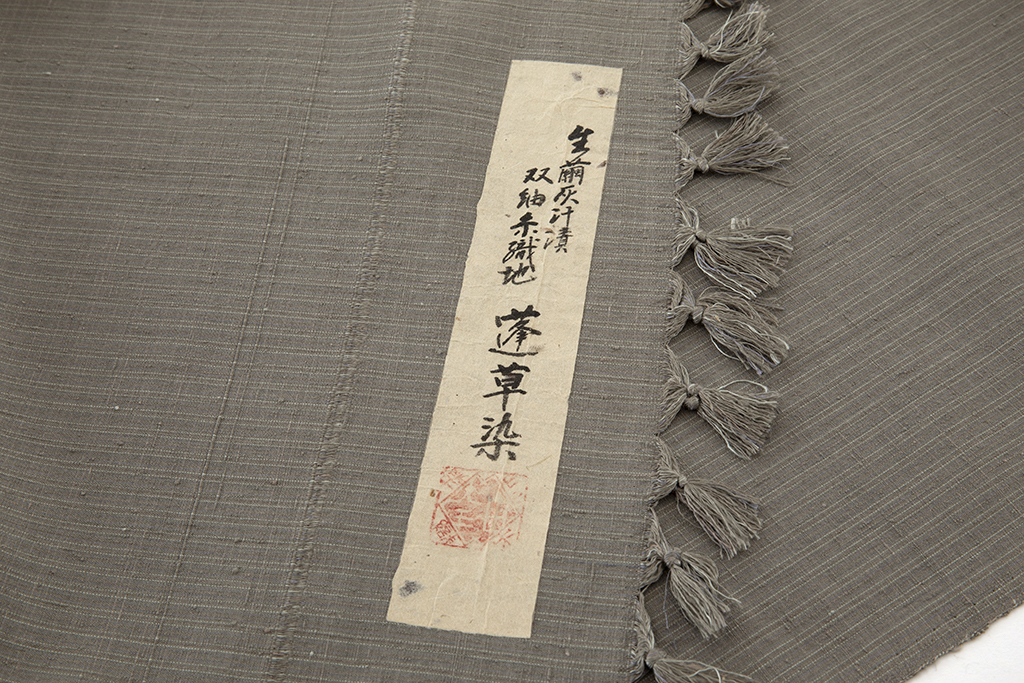 生繭灰汁漬
双紬糸織地
蓬草染